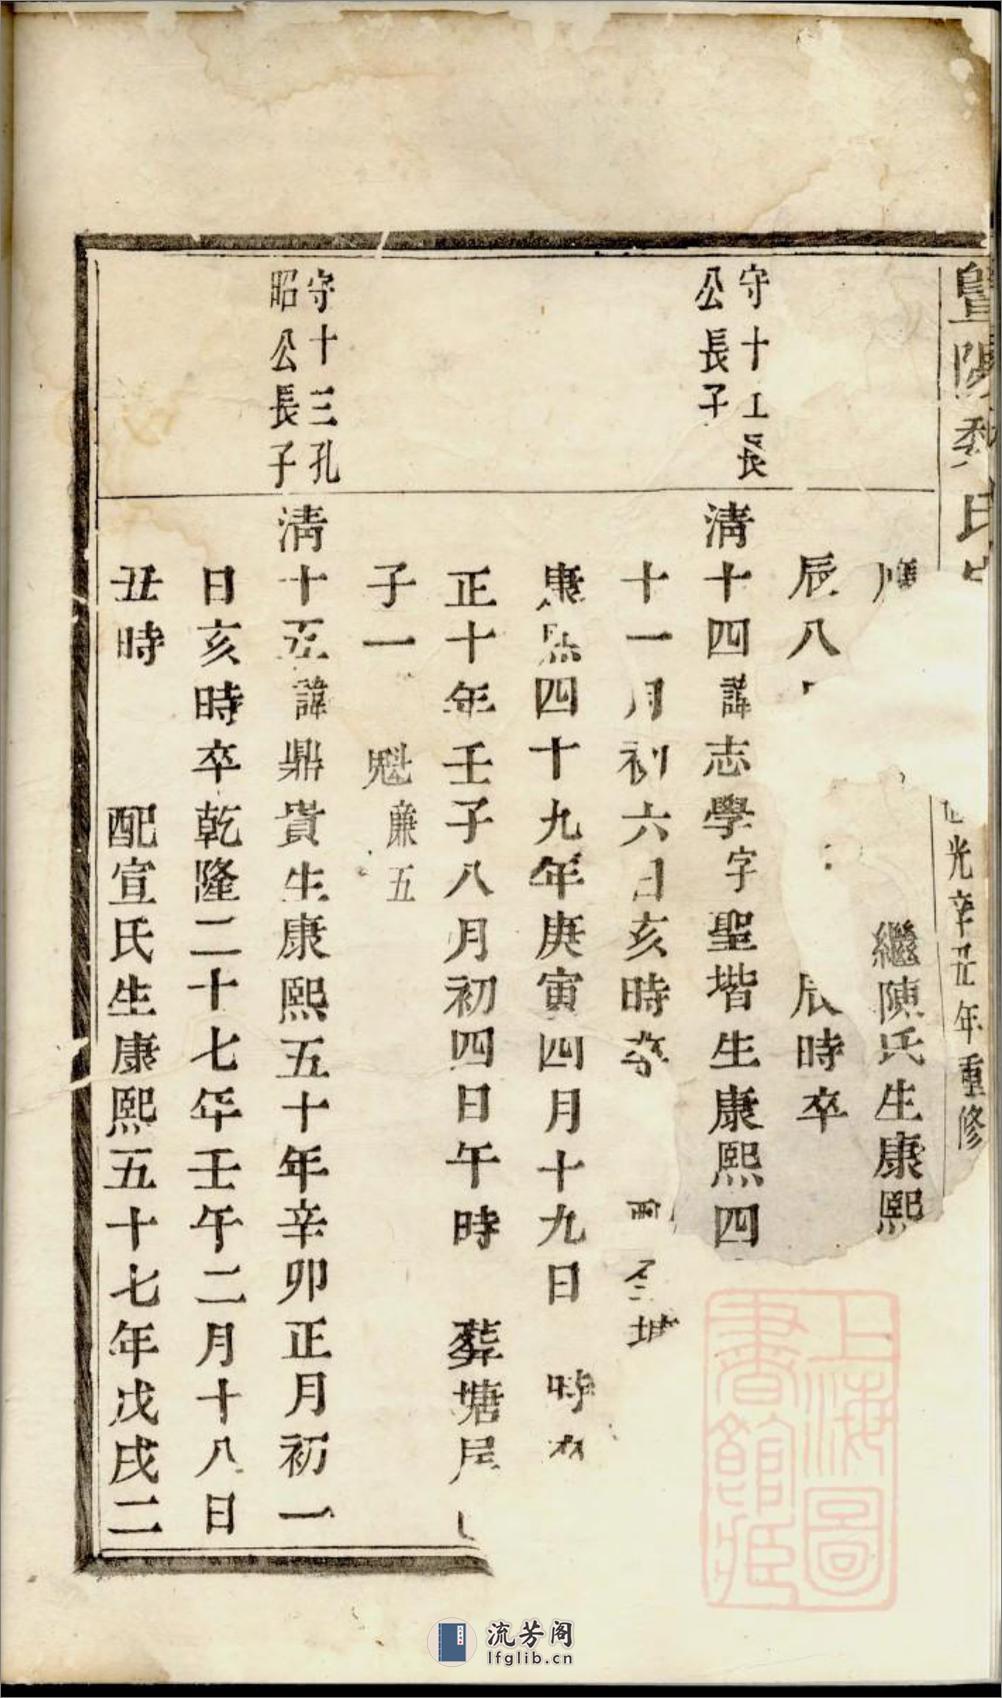 暨陽 氏
光辛丑年重修
繼陳氏生康熙
辰八 辰時卒
守十 長
公長子
清十四諱志學字聖堦生康熙四
十一月初六日亥時卒
康熙四十九年庚寅四月十九日 時
正十年壬子八月初四日午時 葬塘
子一 魁廉五
守十三孔
昭公長子
清十五諱鼎貴生康熙五十年辛卯正月初一
日亥時卒乾隆二十七年壬午二月十八日
丑時 配宣氏生康熙五十七年戊戌二
上海圖
書館藏
流芳阁
lfglib.cn